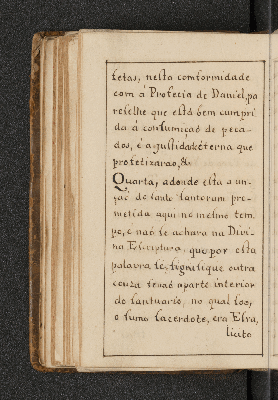 fetas, nesta comformidade
com á Profecia de Daniel, pa
rese lhe que está bem cumpri
da á consumiçaõ de peca-
dos, é a justidade eterna que
profetizaraõ, &.
Quarta, adonde esta a un-
çaõ do santo santorum pro-
metida aqui no mesmo tem
po, e naõ se achara na Divi-
na Escriptura, que por esta
palavra se, signifique outra
couza senaõ a parte interior
do santuario, no qual soo,
o sumo sacerdote, era Elra,
licito